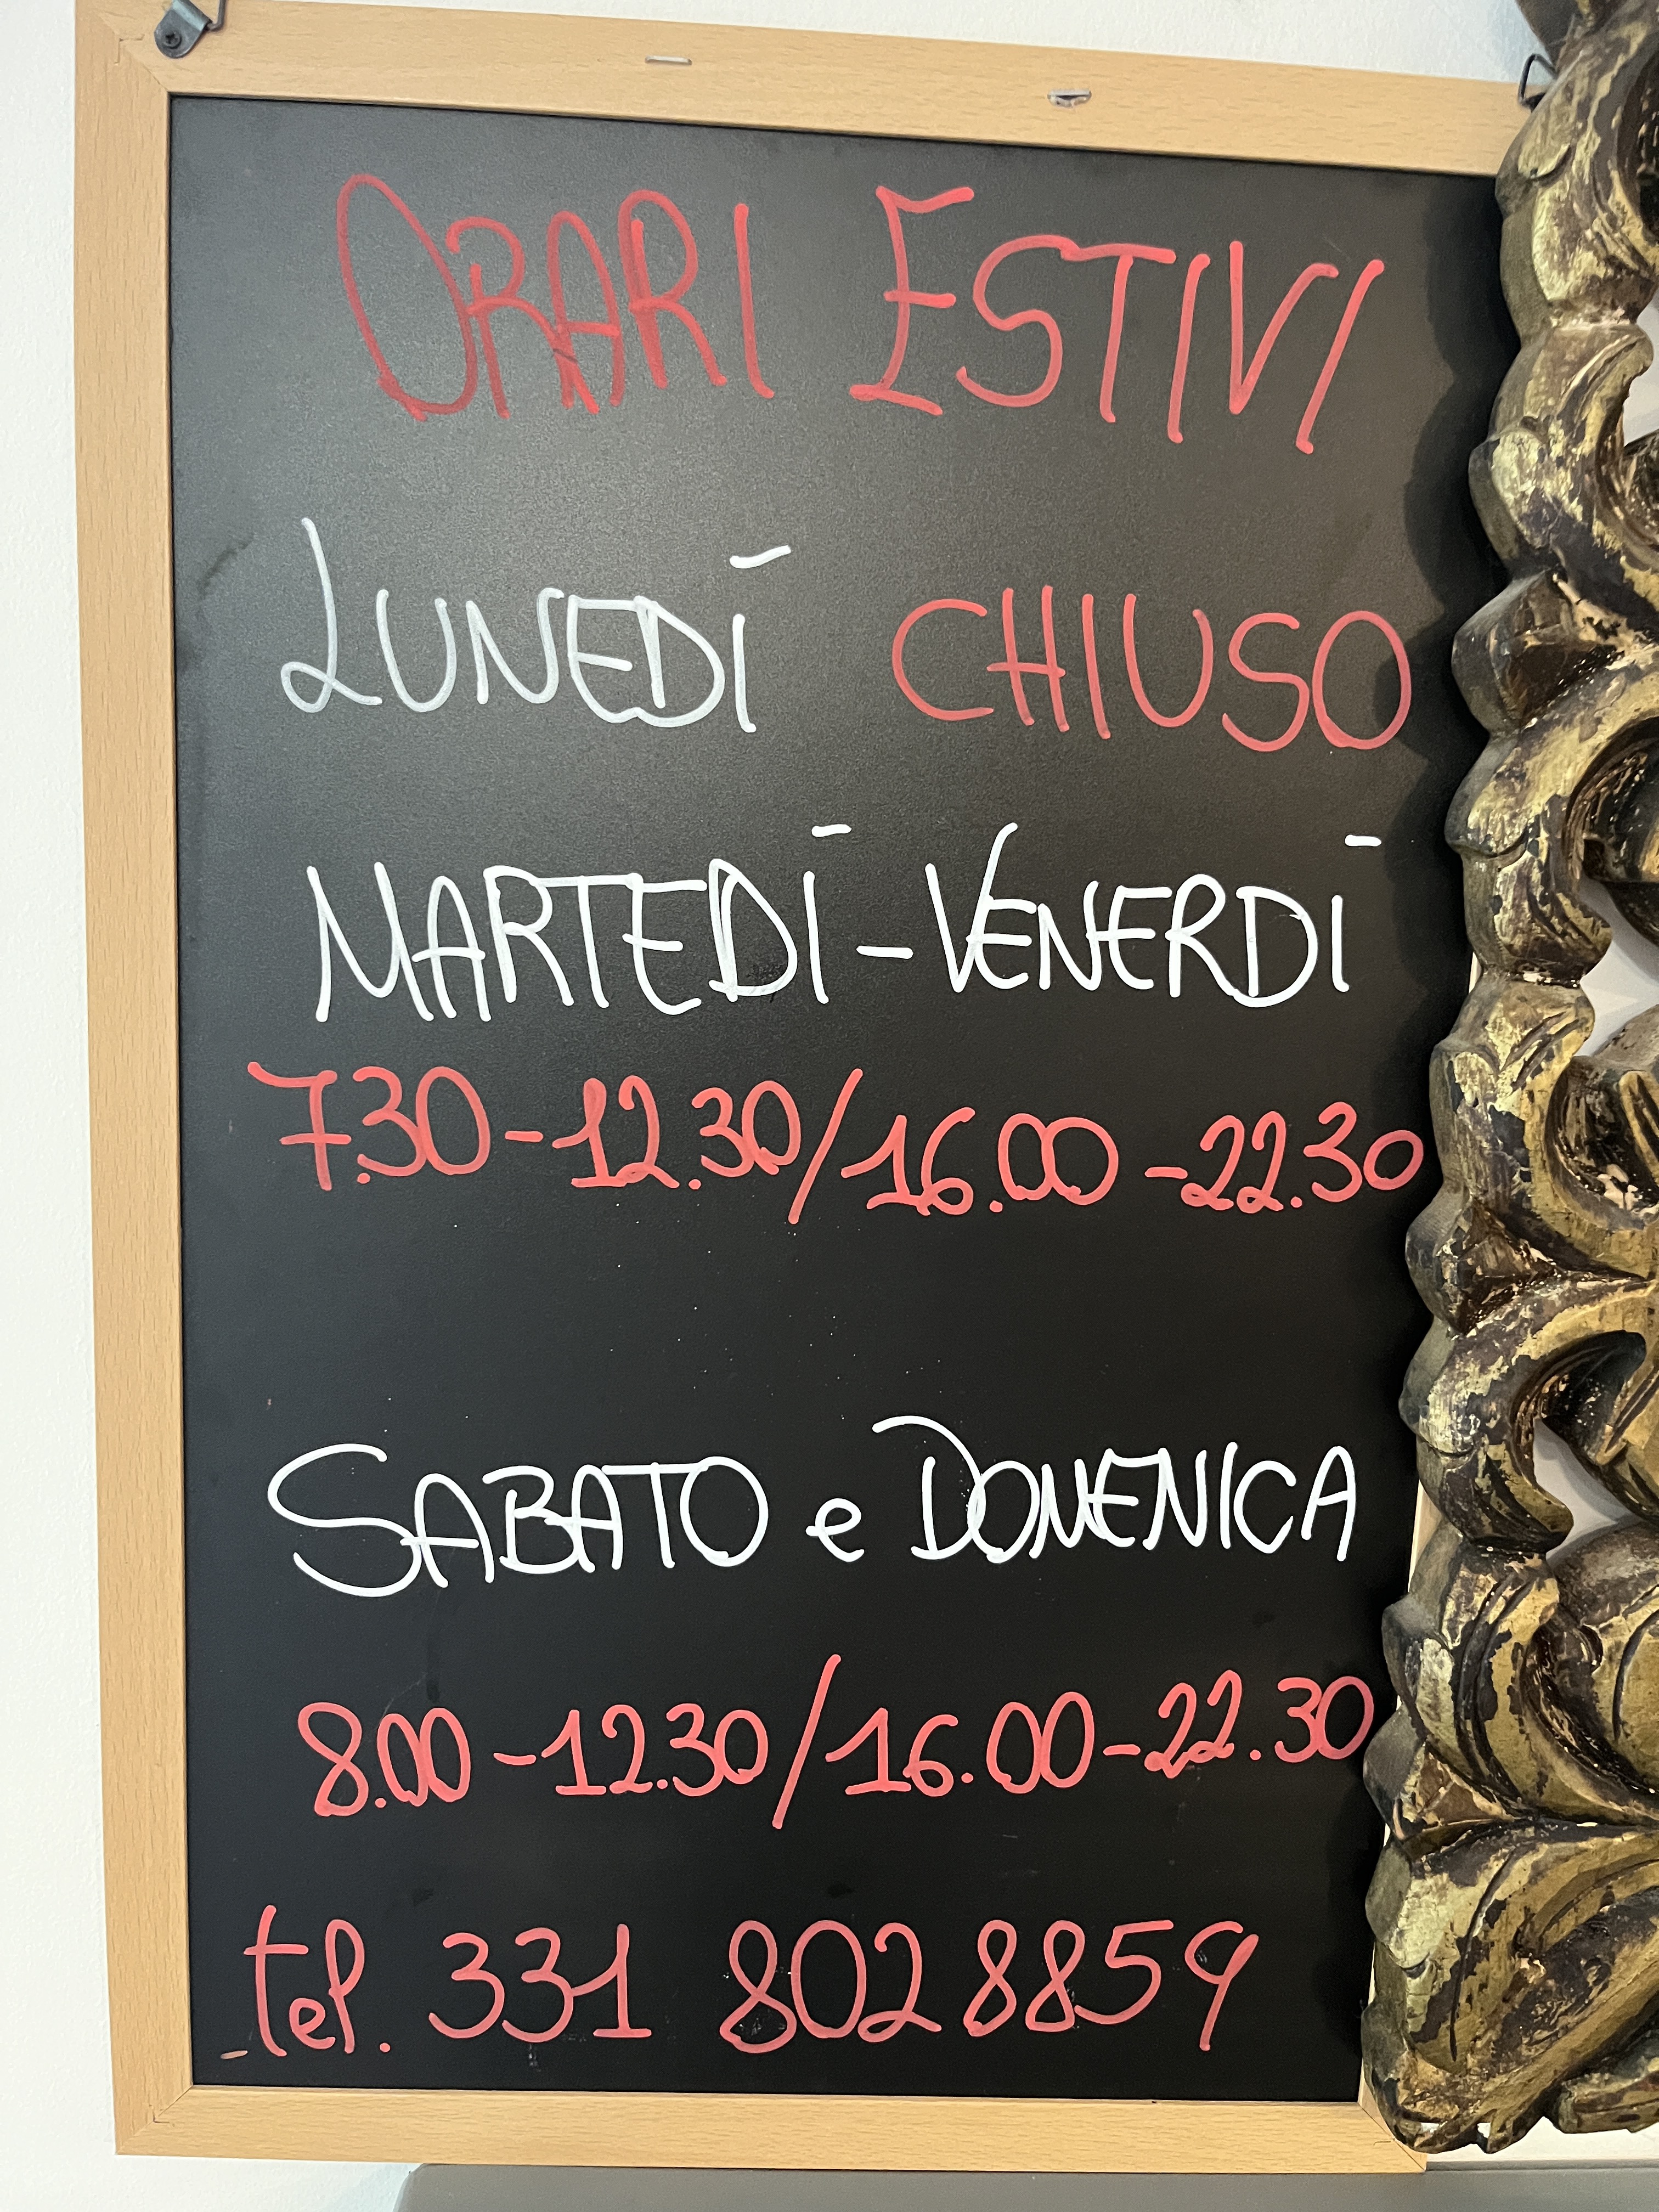 ORARI ESTIVI
LUNEDÌ CHIUSO
MARTEDÌ - VENERDÌ
7.30 - 12.30 / 16.00 - 22.30
SABATO e DOMENICA
8.00 - 12.30 / 16.00 - 22.30
tel. 331 8028859